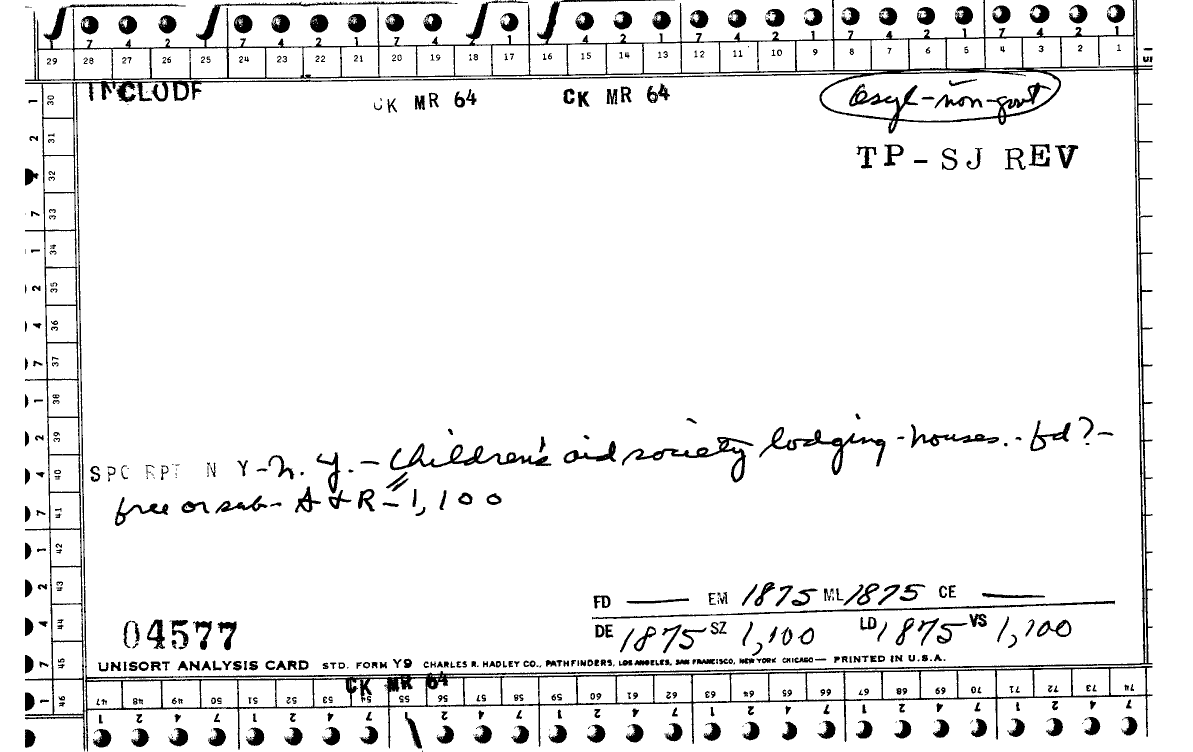 7 4 2 1 7 4 2 1 7 4 2 1 7 4 2 1 7 4 2 1 7 4 2 1
29 28 27 26 25 24 23 22 21 20 19 18 17 16 15 14 13 12 11 10 9 8 7 6 5 4 3 2 1
INCLUDE CK MR 64 CK MR 64 asyl-non-govt
TP-SJ REV
1 30
2 31
4 32
7 33
1 34
2 35
4 36
7 37
1 38
2 39
4 40
7 41
1 42
2 43
4 44
7 45
1 46
SPC RPT N Y-N.Y.-Children's aid society lodging-houses.-fd?-
free or sub- A & R-1,100
FD — EM 1875 ML 1875 CE —
04577 DE 1875 SZ 1,100 LD 1875 VS 1,100
UNISORT ANALYSIS CARD STD. FORM Y9 CHARLES R. HADLEY CO., PATHFINDERS, LOS ANGELES, SAN FRANCISCO, NEW YORK CHICAGO— PRINTED IN U.S.A.
CK MR 64
47 48 49 50 51 52 53 54 55 56 57 58 59 60 61 62 63 64 65 66 67 68 69 70 71 72 73 74
1 2 4 7 1 2 4 7 1 2 4 7 1 2 4 7 1 2 4 7 1 2 4 7 1 2 4 7